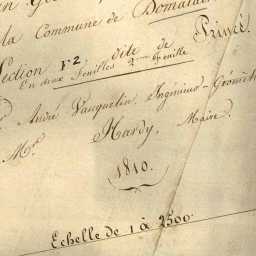 la Commune de Domalain
Section F2 dite de Princé.
En deux Feuilles 2eme Feuille
André Vauquelin, Ingénieur-Géomèt
Mr. Hardy, Maire.
1810.
Echelle de 1 à 2500.